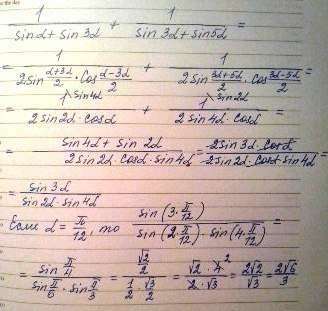 1/(sin α + sin 3α) + 1/(sin 3α + sin 5α) =
= 1/(2 sin (α+3α)/2 · cos (α-3α)/2) + 1/(2 sin (3α+5α)/2 · cos (3α-5α)/2) =
= 1\sin 4α/(2 sin 2α · cos α) + 1\sin 2α/(2 sin 4α · cos α) =
= (sin 4α + sin 2α)/(2 sin 2α · cos α · sin 4α) = (2 sin 3α · cos α)/(2 sin 2α · cos α · sin 4α) =
= sin 3α/(sin 2α · sin 4α)
Если α = π/12, то sin (3 · π/12)/(sin (2 · π/12) · sin (4 · π/12)) =
= sin π/4/(sin π/6 · sin π/3) = (√2/2)/(1/2 · √3/2) = (√2 · 4 2)/(2 · √3) = 2√2/√3 = 2√6/3